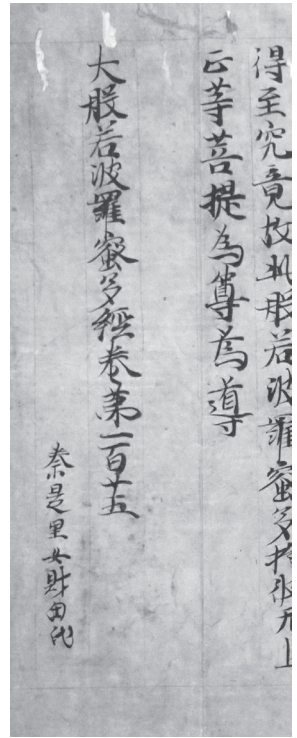 得至究竟故此般若波羅蜜多於彼无上
正等菩提為尊為導
大般若波羅蜜多經卷第二百廿五
奈是里女財田氏